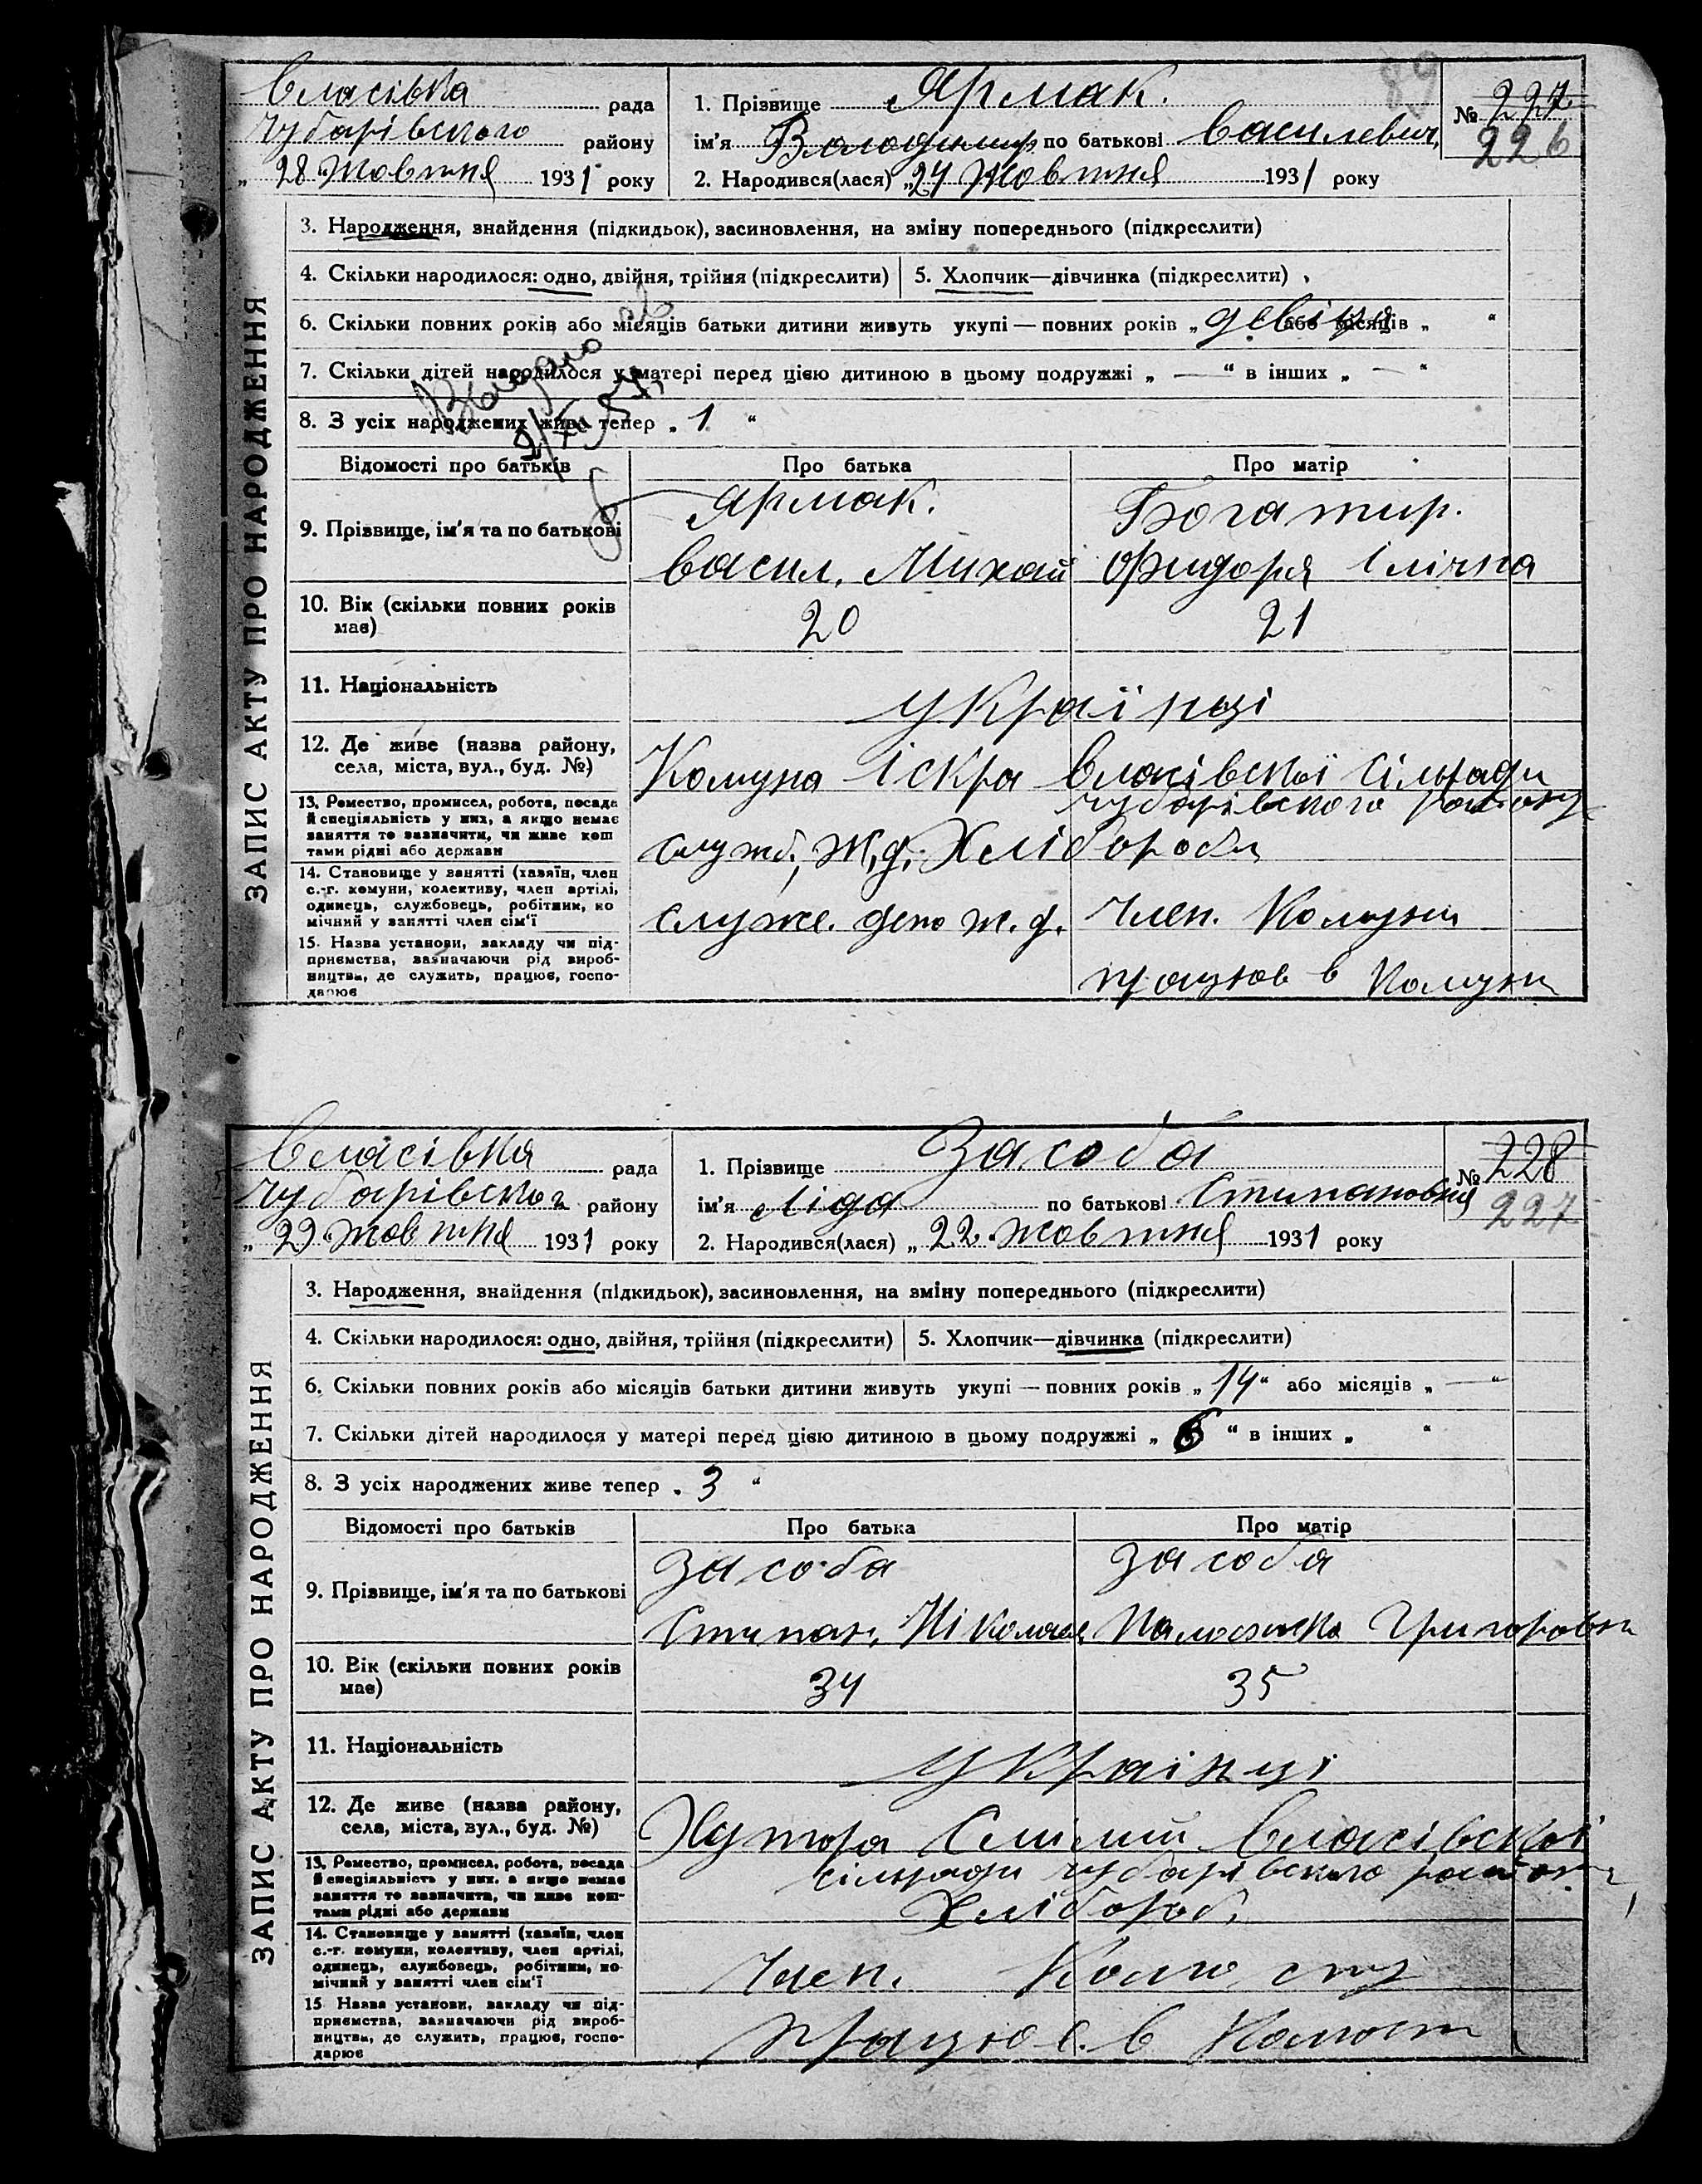 89
Власівка рада
Чубарівського району
„ 28 " Жовтня 1931 року
1. Прізвище Ярмак.
ім'я Володимир по батькові Василевич,
2. Народився(лася) „ 24 Жовтня 1931 року
№ 227
226
ЗАПИС АКТУ ПРО НАРОДЖЕННЯ
3. Народження, знайдення (підкидьок), засиновлення, на зміну попереднього (підкреслити)
4. Скільки народилося: одно, двійня, трійня (підкреслити) 5. Хлопчик—дівчинка (підкреслити)
6. Скільки повних років або місяців батьки дитини живуть укупі — повних років „ або місяців „ “
7. Скільки дітей народилося у матері перед цією дитиною в цьому подружжі „ — “ в інших „ — “
8. З усіх народжених живе тепер „ 1 “
Відомості про батьків Про батька Про матір
9. Прізвище, ім'я та по батькові
Ярмак. Богатир.
Васил. Михай Фидора Ілічна
10. Вік (скільки повних років має) 20 21
11. Національність Українці
12. Де живе (назва району, села, міста, вул., буд. №)
Комуна Іскра Власівської Сільради
Чубарівского району
13. Ремество, промисел, робота, посада й спеціяльність у них, а якщо немає заняття то зазначити, чи живе коштами рідні або держави
служб, Ж.д. Хлібороби
14. Становище у занятті (хазяїн, член с.-г. комуни, колективу, член артілі, одинець, службовець, робітник, помічний у занятті член сім'ї
служе. депо ж.д. Член. Комуни
15. Назва установи, закладу чи підприємства, зазначаючи рід виробництва, де служить, працює, господарює
працює в Комуни
Власівка рада
Чубарівског району
„ 29 " Жовтня 1931 року
1. Прізвище Засоба
ім'я Ліда по батькові Стипановна
2. Народився(лася) „ 22 " Жовтня 1931 року
№ 228
227
ЗАПИС АКТУ ПРО НАРОДЖЕННЯ
3. Народження, знайдення (підкидьок), засиновлення, на зміну попереднього (підкреслити)
4. Скільки народилося: одно, двійня, трійня (підкреслити) 5. Хлопчик—дівчинка (підкреслити)
6. Скільки повних років або місяців батьки дитини живуть укупі — повних років „ 14 “ або місяців „ — “
7. Скільки дітей народилося у матері перед цією дитиною в цьому подружжі „ “ в інших „ “
8. З усіх народжених живе тепер „ 3 “
Відомості про батьків Про батька Про матір
9. Прізвище, ім'я та по батькові
Засоба Засоба
Стипан. Ніколаев Григоровна
10. Вік (скільки повних років має) 34 35
11. Національність Українці
12. Де живе (назва району, села, міста, вул., буд. №)
Хутора Власівскої
сільради Чубарівського району
13. Ремество, промисел, робота, посада й спеціяльність у них, а якщо немає заняття то зазначити, чи живе коштами рідні або держави
Хлібороб.
14. Становище у занятті (хазяїн, член с.-г. комуни, колективу, член артілі, одинець, службовець, робітник, помічний у занятті член сім'ї
Член.
15 Назва установи, закладу чи підприємства, зазначаючи рід виробництва, де служить, працює, господарює
Працює в